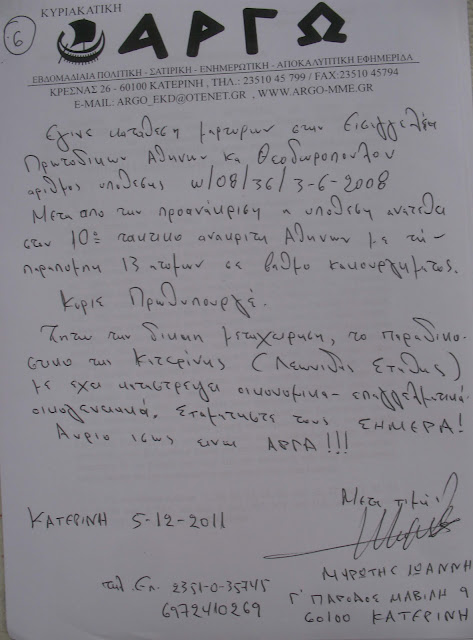 6
ΚΥΡΙΑΚΑΤΙΚΗ
ΑΡΓΩ
ΕΒΔΟΜΑΔΙΑΙΑ ΠΟΛΙΤΙΚΗ - ΣΑΤΙΡΙΚΗ - ΕΝΗΜΕΡΩΤΙΚΗ - ΑΠΟΚΑΛΥΠΤΙΚΗ ΕΦΗΜΕΡΙΔΑ
ΚΡΕΣΝΑΣ 26 - 60100 ΚΑΤΕΡΙΝΗ , ΤΗΛ.: 23510 45 799 / FAX:23510 45794
E-MAIL: ARGO_EKD@OTENET.GR , WWW.ARGO-MME.GR
Εγινε καταθεση μαρτυρων στην Εισαγγελέα
Πρωτοδικων Αθηνων κα Θεοδωροπουλου
αριθμος υποθεσης w/08/36/3-6-2008
Μετα απο την προανάκριση η υποθεση ανατεθει
στον 10ο τακτικο ανακριτη Αθηνων με τη-
παραπομπη 13 ατομων σε βαθμο κακουργηματος.
Κυριε Πρωθυπουργέ.
Ζητω την δικαιη μεταχειρηση, το παραδικα-
στικο της Κατερίνης (Λεωνιδας Σταθης)
με εχει καταστρεψει οικονομικα- επαγγελματικά-
οικογενειακά. Σταματηστε τους ΣΗΜΕΡΑ!
Αυριο ισως ειναι ΑΡΓΑ!!!
Μετα τιμής
ΚΑΤΕΡΙΝΗ 5-12-2011
ΜΥΡΩΤΗΣ ΙΩΑΝΝΗ
τηλ. Επ. 2351-0-35745
Γ' ΠΑΡΟΔΟΣ ΜΑΒΙΛΗ 9
6972410269
60100 ΚΑΤΕΡΙΝΗ